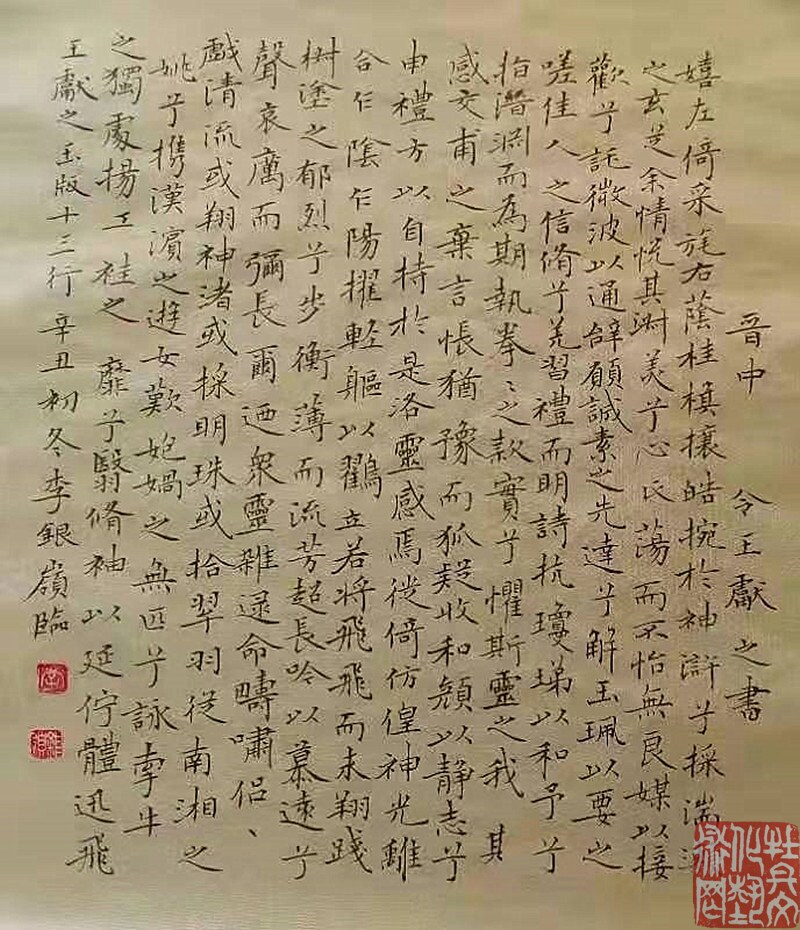 晉中 令王獻之書
嬉左倚采旄右蔭桂棋攘皓捥於神滸兮採湍
之玄芝余情悅其淑美兮心氏蕩而不怡無良媒以接
歡兮託微波以通辭願誠素之先達兮解玉珮以要之
嗟佳人之信脩兮羌習禮而明詩抗瓊珶以和予兮
指潛淵而為期執拳ミ之款實兮懼斯靈之我 其
感交甫之棄言悵猶豫而狐疑收和顏以静志兮
申禮方以自持於是洛靈感焉徙倚仿偟神光離
合乍陰乍陽擢軽軀以鸖立若將飛飛而未翔踐
樹塗之郁烈兮步衡薄而流芳超長吟以慕遠兮
聲哀厲而彌長爾迺眾靈雜遝命疇嘯侶、
戲清流或翔神渚或採明珠或拾翠羽從南湘之
姚兮携漢濱之遊女歎匏媧之無匹兮詠牽牛
之獨處揚工袿之 靡兮翳脩袖以延佇體迅飛
王獻之玉版十三行 辛丑初冬李銀嶺臨